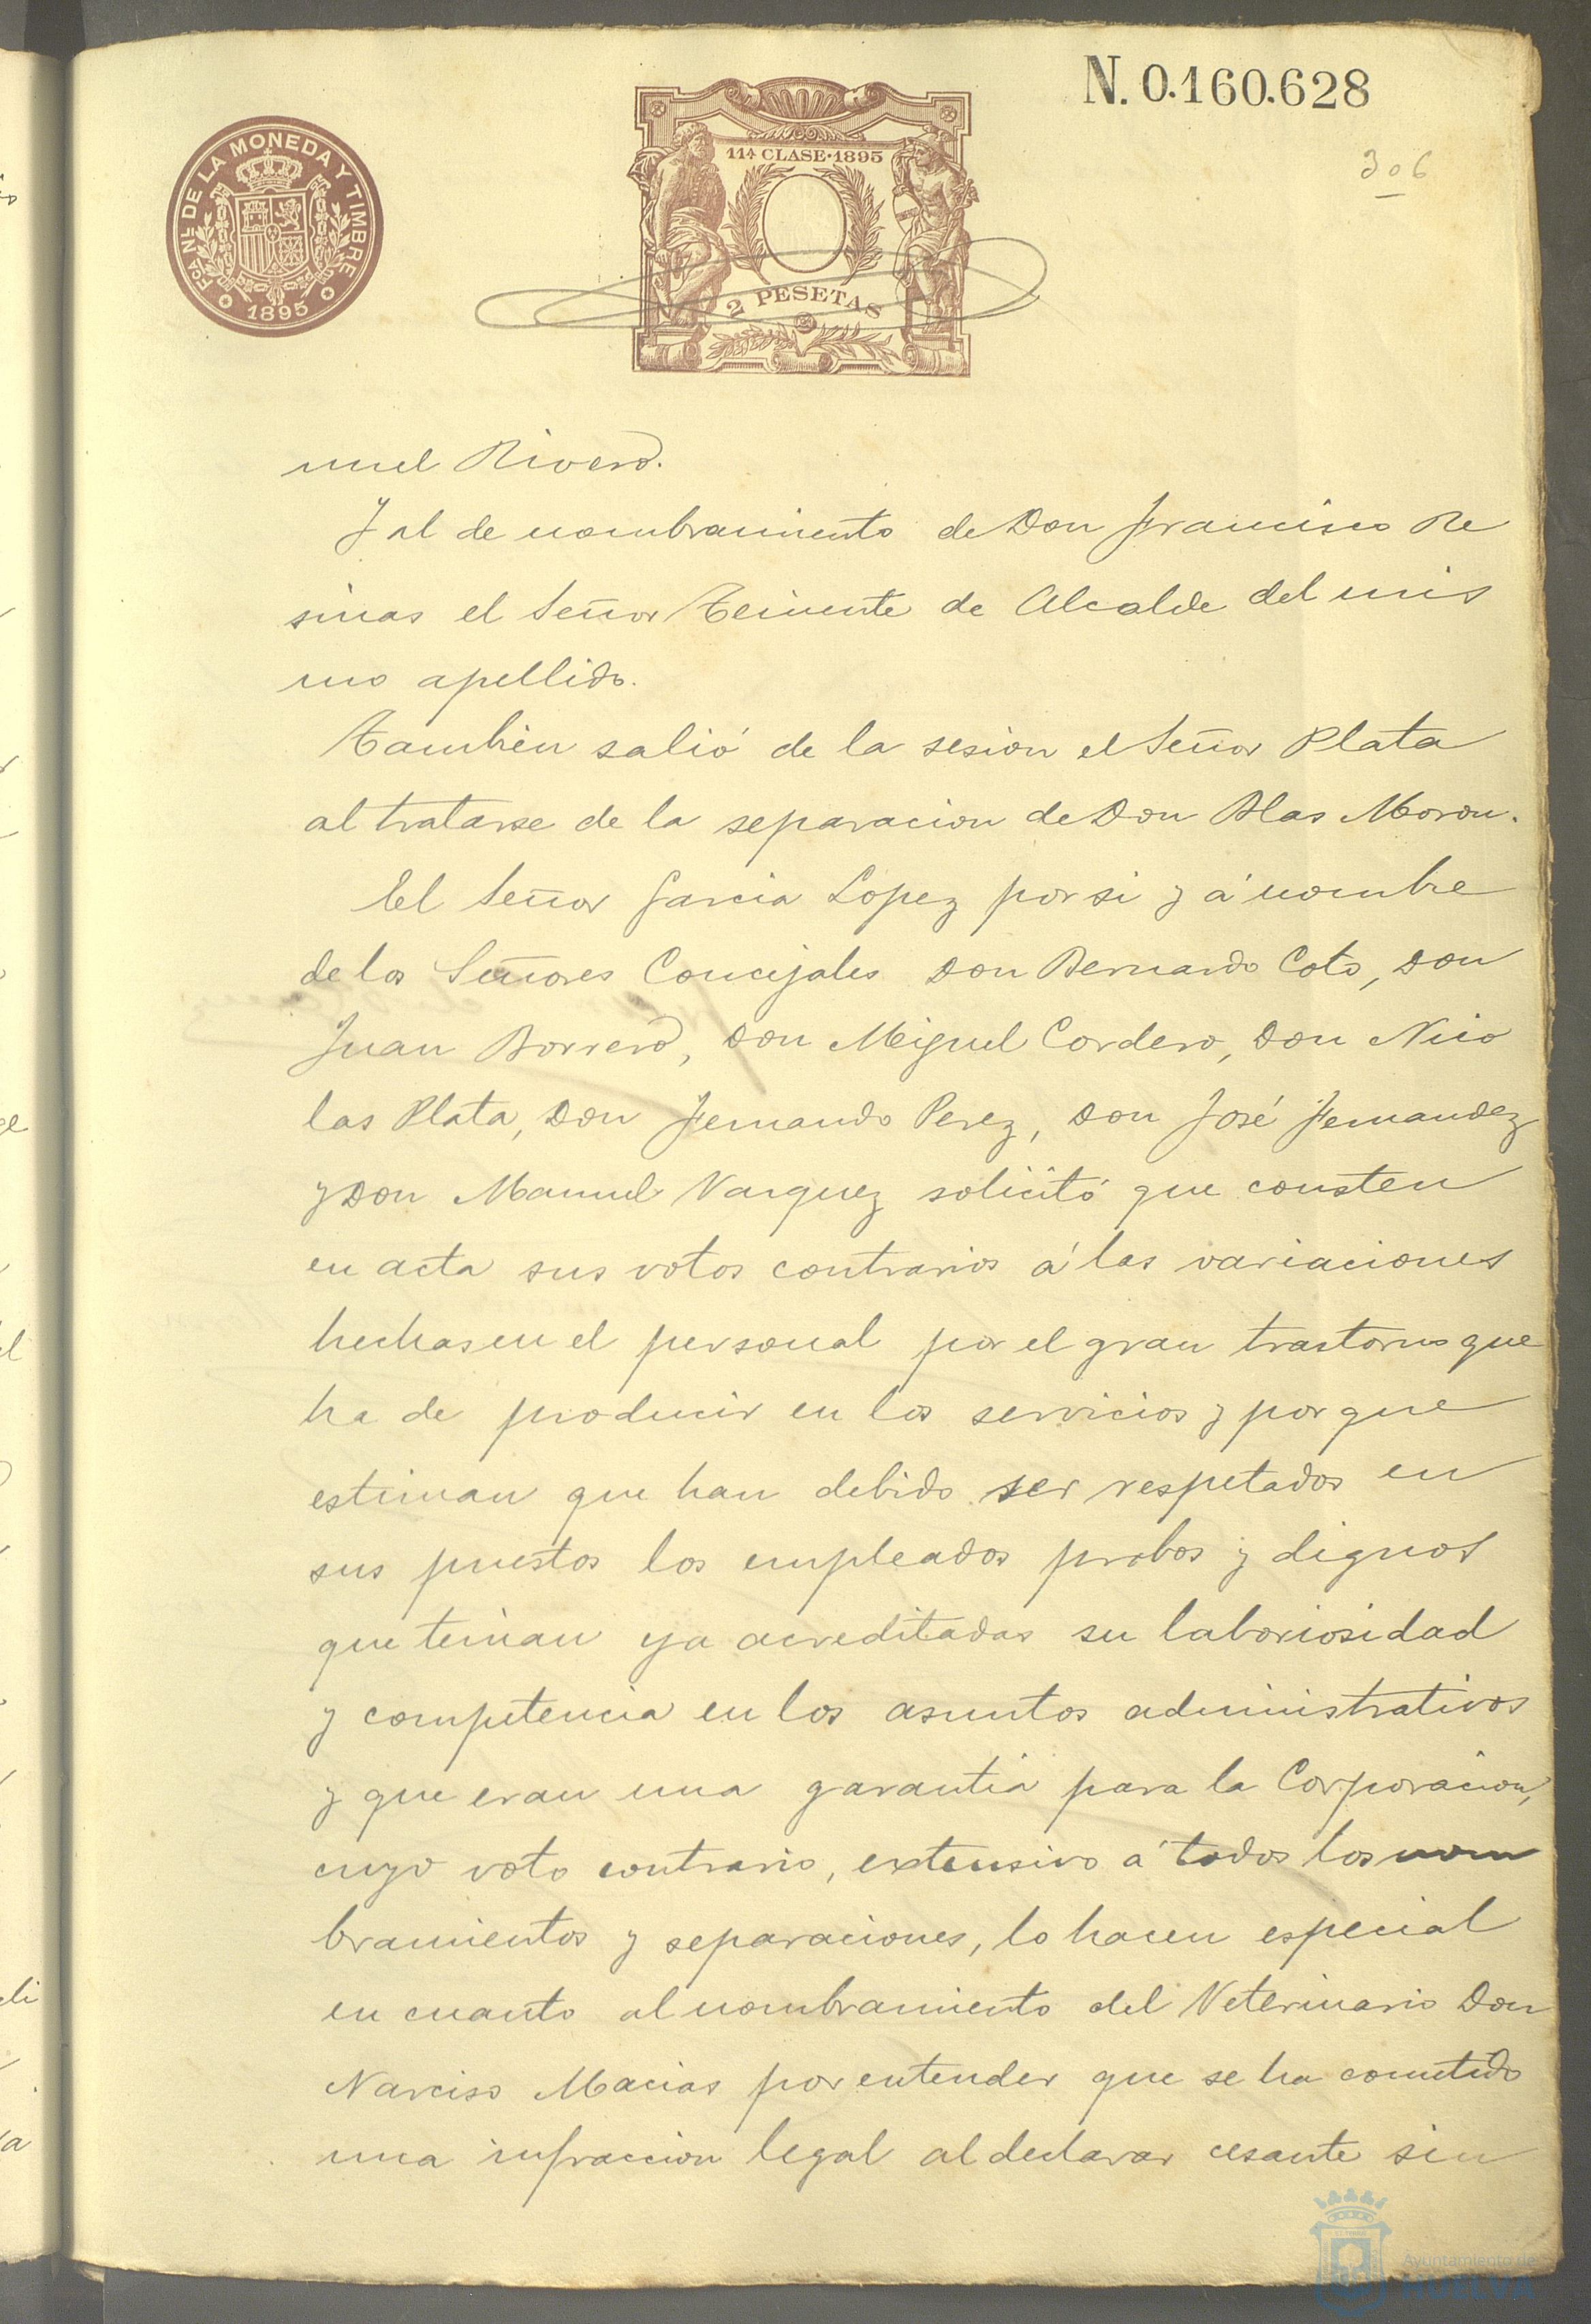 N. 0.160.628
306
FCA NL DE LA MONEDA Y TIMBRE
1895
11ª CLASE·1895
2 PESETAS
nuel Rivero.
Y al de nombramiento de Don Francisco Re
sinas el Señor Teniente de Alcalde del mis
mo apellido.
Tambien salió de la sesion el Señor Plata
al tratarse de la separacion de Don Blas Moron.
El Señor Garcia Lopez por si y á nombre
de los Señores Concejales Don Bernardo Coto, Don
Juan Borrero, Don Miguel Cordero, Don Nico
las Plata, Don Fernando Perez, Don José Fernandez
y Don Manuel Vazquez solicitó que consten
en acta sus votos contrarios á las variaciones
hechas en el personal por el gran trastorno que
ha de producir en los servicios y porque
estiman que han debido ser respetados en
sus puestos los empleados probos y dignos
que tenian ya acreditadas su laboriosidad
y competencia en los asuntos administrativos
y que eran una garantia para la Corporacion,
cuyo voto contrario, extensivo á todos los nom
bramientos y separaciones, lo hacen especial
en cuanto al nombramiento del Veterinario Don
Narciso Macias por entender que se ha cometido
una infraccion legal al declarar cesante sin
Ayuntamiento de
HUELVA